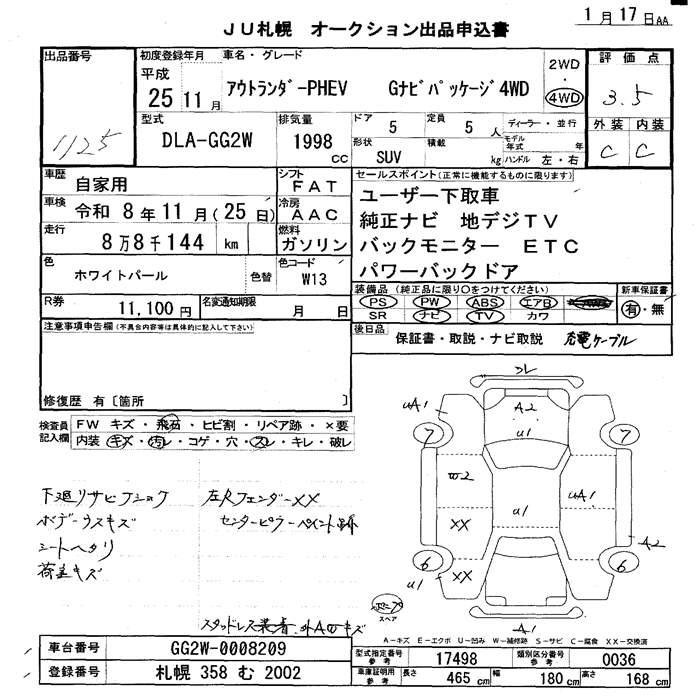 1月17日AA
JU札幌 オークション出品申込書
出品番号 1125
初度登録年月 平成 25 11月
車名・グレード
アウトランダーPHEV Gナビパッケージ4WD
2WD ・ 4WD
評価点 3.5
外装 内装
C C
型式 DLA-GG2W
排気量 1998 cc
ドア 5
定員 5 人
ディーラー・並行
形状 SUV
積載 kg
モデル年式 年
ハンドル 左・右
車歴 自家用
シフト FAT
セールスポイント(正常に機能するものに限ります)
ユーザー下取車
純正ナビ 地デジTV
バックモニター ETC
パワーバックドア
車検 令和 8年11月(25日)
冷房 AAC
走行 8万8千144 km
燃料 ガソリン
色 ホワイトパール 色替
色コード W13
装備品(純正品に限り○をつけてください) 新車保証書
PS PW ABS エアB
SR ナビ TV カワ
有・無
R券 11,100円
名変通知期限 月 日
後日品 保証書・取説・ナビ取説 充電ケーブル
注意事項申告欄(不具合内容等は具体的に記入して下さい)
修復歴 有〔箇所 〕
検査員記入欄
FW キズ・飛石・ヒビ割・リペア跡・×要
内装 キズ・汚レ・コゲ・穴・スレ・キレ・破レ
下廻リサビフショク
ボデーウスキズ
シートヘタリ
荷室キズ
左Rフェンダー××
センターピラーペイント跡
スタッドレス
A2
U1
UA1
7 7
W2
UA1
U1
XX
A2
6 6
U1
XX
A1
スペア
A-キズ E-エクボ U-凹み W-補修跡 S-サビ C-腐食 XX-交換済
車台番号 GG2W-0008209
登録番号 札幌 358 む 2002
型式指定番号 参考 17498
類別区分番号 参考 0036
車庫証明用 参考 長さ 465 cm 幅 180 cm 高さ 168 cm